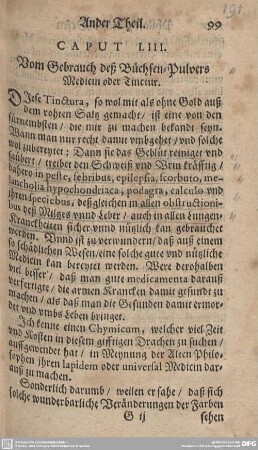 191.
Ander Theil. 99
CAPUT LIII.
Vom Gebrauch deß Büchsen-Pulvers
Medicin oder Tinctur.
DIese Tinctura, so wol mit als ohne Gold auß
dem rohten Saltz gemacht / ist eine von den
fürnembsten / die mir zu machen bekandt seyn.
Wann man nur recht damit vmbgehet / vnd solche
wol zubereytet: Dann sie das Geblüt reiniget vnd
säubert / treibet den Schweiß vnd Vrin kräfftig /
dahero in peste, febribus, epilepsia, scorbuto, me-
lancholia hypochondriaca, podagra, calculo vnd
ihren speciebus, deßgleichen in allen obstructioni-
bus deß Miltzes vnnd Leber / auch in allen Lungen-
Kranckheiten sicher vnnd nützlich kan gebrauchet
werden. Vnnd ist zu verwundern / daß auß einem
so schädlichen Wesen / eine solche gute vnd nützliche
Medicin kan bereytet werden. Were derohalben
viel besser / daß man gute medicamenta darauß
verfertigte / die armen Krancken damit gesundt zu
machen / als daß man die Gesunden damit ermor-
det vnd vmbs Leben bringet.
Ich kenne einen Chymicum, welcher viel Zeit
vnd Kosten in diesem gifftigen Drachen zu suchen /
auffgewendet hat / in Meynung der Alten Philo-
sophen ihren lapidem oder universal Medicin dar-
auß zu machen.
Sonderlich darumb / weilen er sahe / daß sich
solche wunderbarliche Veränderungen der Farben
G ij sehen